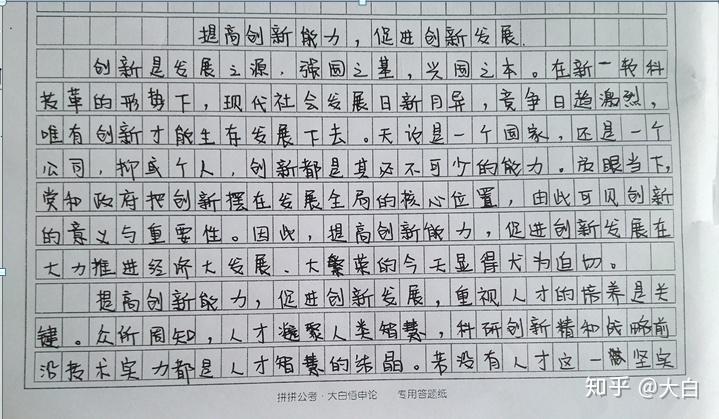 提高创新能力，促进创新发展
创新是发展之源，强国之基，兴国之本。在新一轮科
技革的形势下，现代社会发展日新月异，竞争日趋激烈，
唯有创新才能生存发展下去。无论是一个国家，还是一个
公司，抑或个人，创新都是其必不可少的能力。放眼当下，
党和政府把创新摆在发展全局的核心位置，由此可见创新
的意义与重要性。因此，提高创新能力，促进创新发展在
大力推进经济大发展、大繁荣的今天显得尤为迫切。
提高创新能力，促进创新发展，重视人才的培养是关
键。众所周知，人才凝聚人类智慧，科研创新精和战略前
沿技术实力都是人才智慧的结晶。若没有人才这一坚实
拼拼公考·大白悟申论 专用答题纸
知乎 @大白